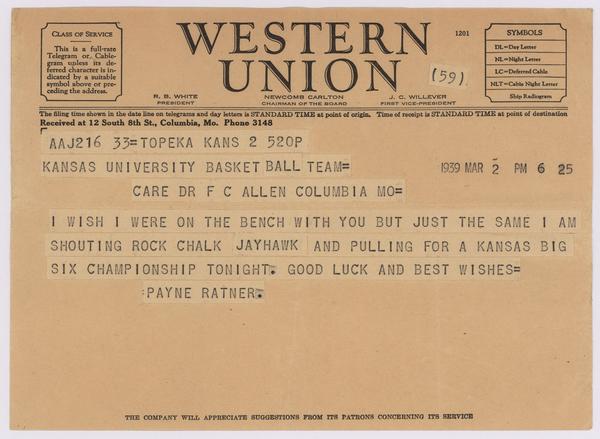 CLASS OF SERVICE
This is a full-rate
Telegram or Cable-
gram unless its de-
ferred character is in-
dicated by a suitable
symbol above or pre-
ceding the address.
WESTERN
UNION
1201
(59)
SYMBOLS
DL=Day Letter
NL=Night Letter
LC=Deferred Cable
NLT=Cable Night Letter
Ship Radiogram
R. B. WHITE
PRESIDENT
NEWCOMB CARLTON
CHAIRMAN OF THE BOARD
J. C. WILLEVER
FIRST VICE-PRESIDENT
The filing time shown in the date line on telegrams and day letters is STANDARD TIME at point of origin. Time of receipt is STANDARD TIME at point of destination
Received at 12 South 8th St., Columbia, Mo. Phone 3148
AAJ216 33=TOPEKA KANS 2 520P
KANSAS UNIVERSITY BASKET BALL TEAM=
1939 MAR 2 PM 6 25
CARE DR F C ALLEN COLUMBIA MO=
I WISH I WERE ON THE BENCH WITH YOU BUT JUST THE SAME I AM
SHOUTING ROCK CHALK JAYHAWK AND PULLING FOR A KANSAS BIG
SIX CHAMPIONSHIP TONIGHT. GOOD LUCK AND BEST WISHES=
:PAYNE RATNER.
THE COMPANY WILL APPRECIATE SUGGESTIONS FROM ITS PATRONS CONCERNING ITS SERVICE